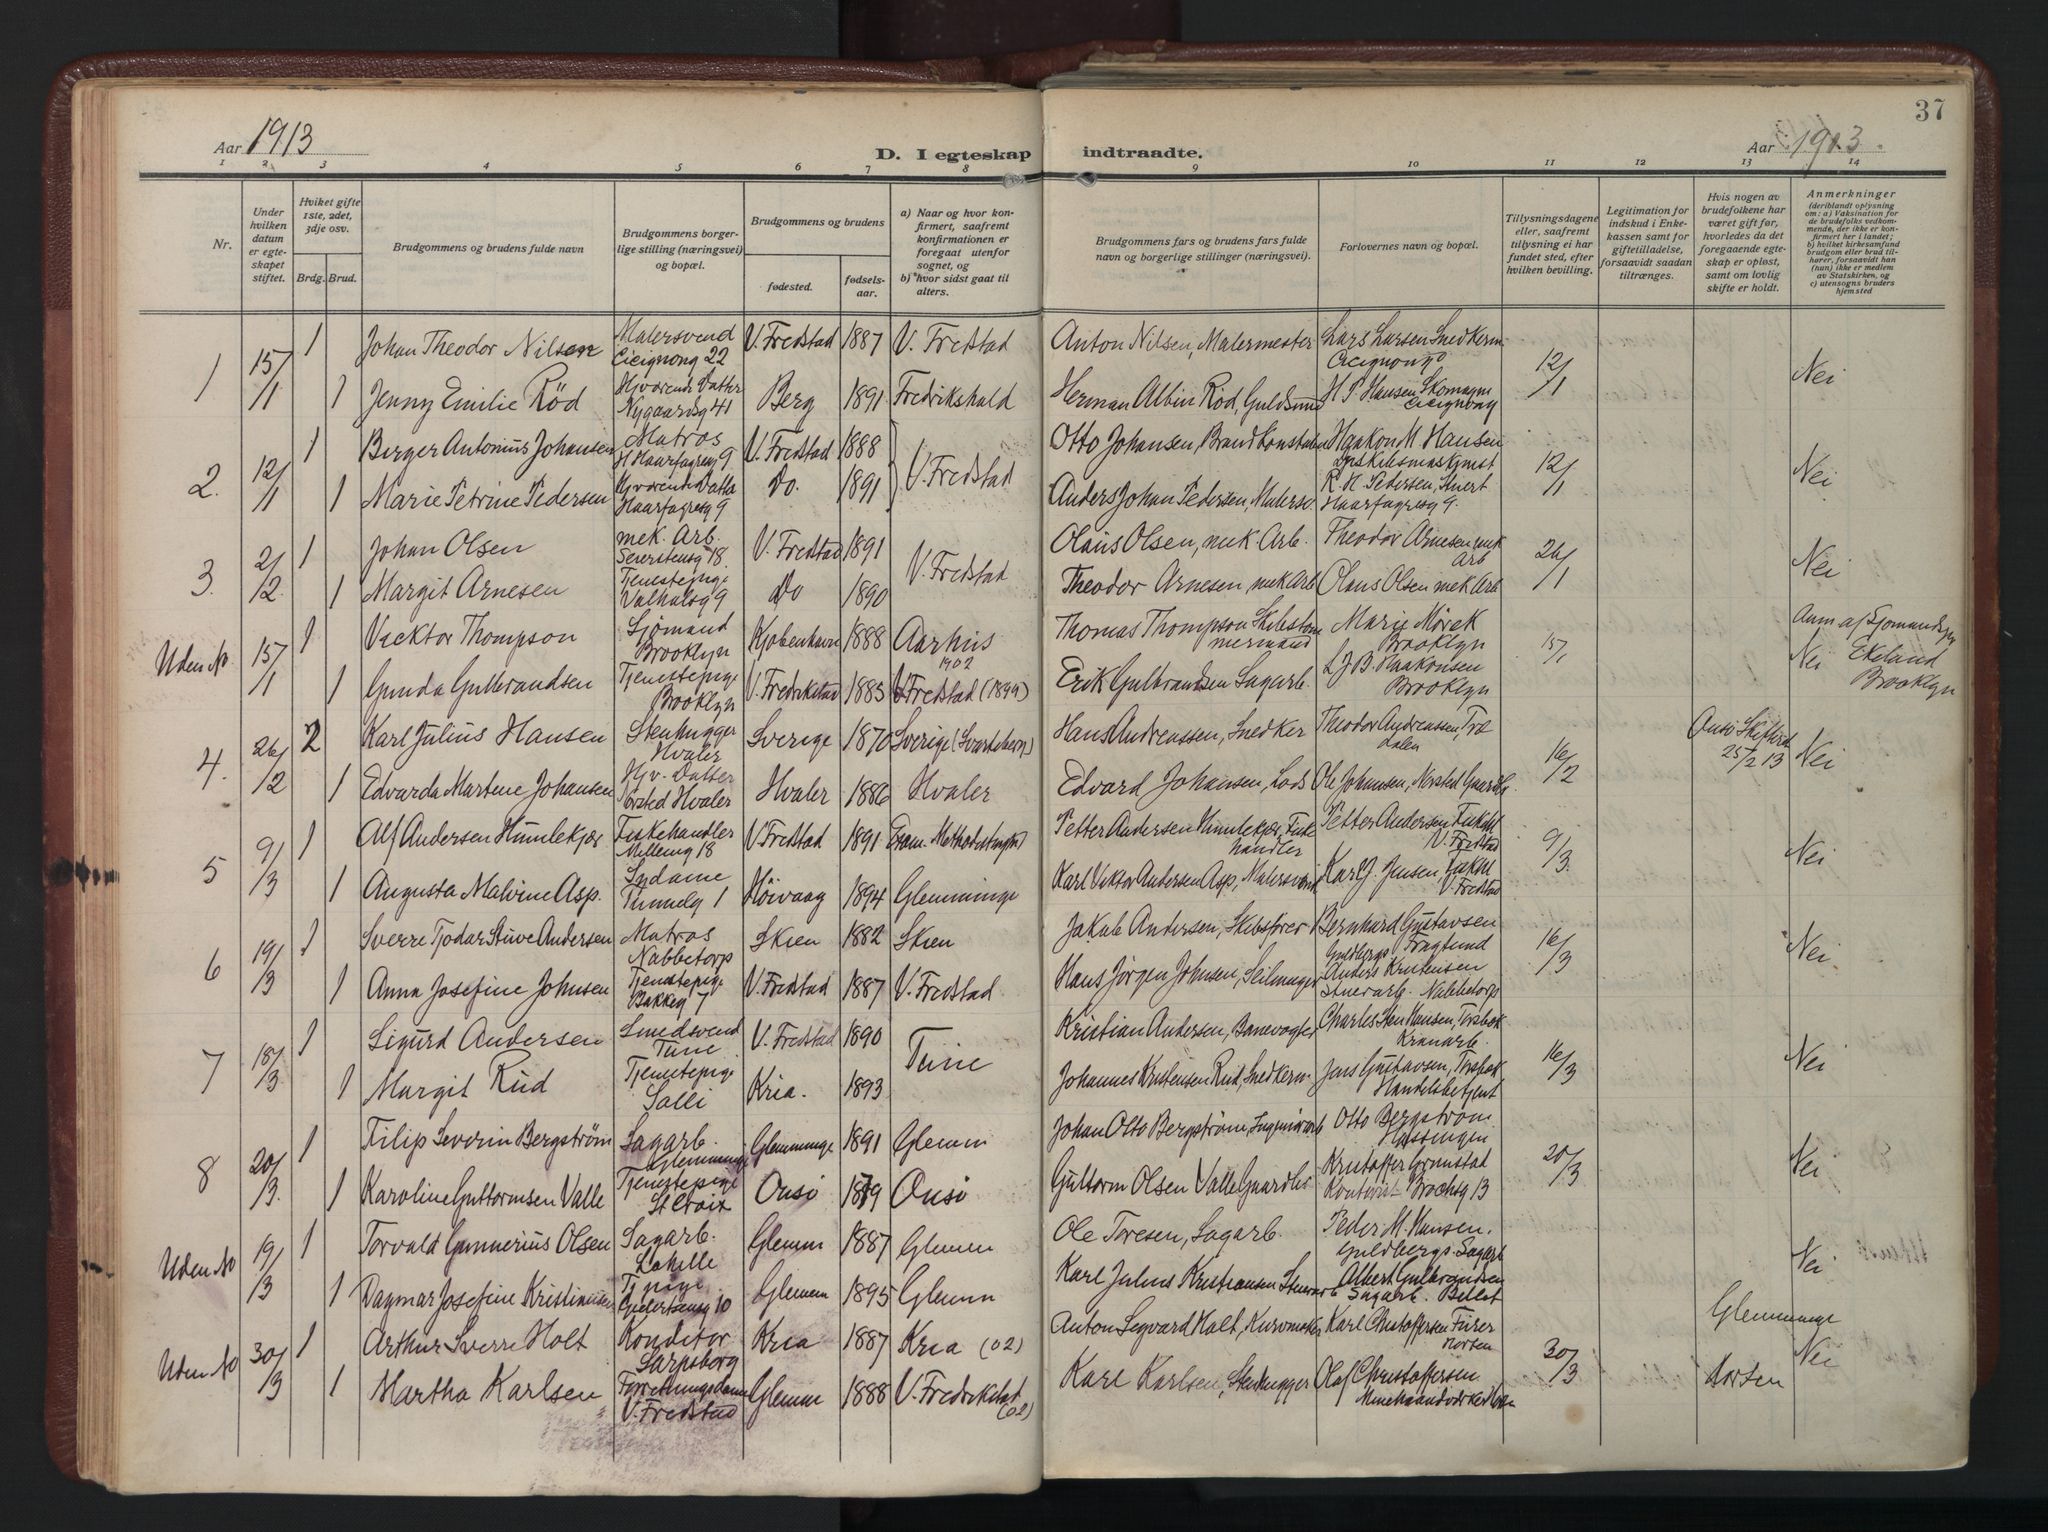 37
Aar 1913
D. I egteskap indtraadte.
Aar 1913
1 2 3 4 5 6 7 8 9 10 11 12 13 14
Nr.
Under hvilken datum er egteskapet stiftet.
Hviket gifte 1ste, 2det, 3dje osv.
Brdg. Brud.
Brudgommens og brudens fulde navn
Brudgommens borgerlige stilling (næringsvei) og bopæl.
Brudgommens og brudens
fødested.
fødselsaar.
a) Naar og hvor konfirmert, saafremt konfirmationen er foregaat utenfor sognet, og
b) hvor sidst gaat til alters.
Brudgommens fars og brudens fars fulde navn og borgerlige stillinger (næringsvei).
Forlovernes navn og bopæl.
Tillysningsdagene eller, saafremt tillysning ei har fundet sted, efter hvilken bevilling.
Legitimation for indskud i Enkekassen samt for giftetilladelse, forsaavidt saadan tiltrænges.
Hvis nogen av brudefolkene har været gift før, hvorledes da det foregaaende egteskap er opløst, samt om lovlig skifte er holdt.
Anmerkninger
(deriblandt oplysning om: a) Vaksination for de brudefolks vedkommende, der ikke er konfirmert her i landet; b) hvilket kirkesamfund brudgom eller brud tilhører, forsaavidt han (hun) ikke er medlem av Statskirken, og c) utensogns bruders hjemsted
1 15/1 1 Johan Theodor Nilsen Malersvend Cicignong 22 V. Fredstad 1887 V. Fredstad Anton Nilsen, Malermester Lars Larsen Snedkerm Cicignong 12/1 Nei
1 Jenny Emilie Röd Hjværende Datter Nygaardsg 41 Berg 1891 Fredrikshald Herman Albin Röd, Guldsmed H P Hansen Skomagm Cicignong
2. 12/1 1 Birger Antonius Johansen Matros H Haarfagresg 9 V. Fredstad 1888 V. Fredstad Otto Johansen, Brandkonstabel Haakon M Hansen Dypskibsmaskinist 12/1 Nei
1 Marie Petrine Pedersen Hjværende Datter Haarfagresg 9 Do. 1891 Anders Johan Pedersen, Malersv. R H Pedersen, Stuert Haarfagresg 9.
3. 2/2 1 Johan Olsen mek. Arb. Seierstensg 18. V. Fredstad 1891 V. Fredstad Olaus Olsen, mek. Arb. Theodor Arnesen mek Arb 26/1 Nei
1 Margit Arnesen Tjenestepige Valhalsg 9 Do 1890 Theodor Arnesen, mek Arb Olaus Olsen mek Arb
Uden No 15/1 1 Vicktor Thompson Sjømand Brooklyn Kjøbenhavn 1888 Aarhus 1902 Thomas Thompson Skibstømmermand Marie Mörck Brooklyn 15/1 Nei Anm af Sjomandspr Ekeland Brooklyn
1 Gunda Gulbrandsen Tjenestepige Brooklyn V. Fredrikstad 1883 V Fredstad (1899) Erik Gulbrandsen Sagarb. L J B. Haakonsen Brooklyn
4. 26/2 2 Karl Julius Hansen Stenhugger Hvaler Sverige 1870 Sverige (Svarteborg) Hans Andreassen, Snedker Theodor Andreassen, Trædalen 16/2 Onsö Skifteret 25/2 13 Nei
1 Edvarda Martene Johansen Hjv. Datter Norsted Hvaler Hvaler 1886 Hvaler Edvard Johansen, Lods Ole Johansen, Norsted Gaardbr.
5 9/3 1 Alf Andersen Humlekjær Fiskehandler Mølleng 18 V Fredstad 1891 Petter Andersen Humlekjær, Fiskehandler Petter Andersen Fiskehl V. Fredstad 9/3. Nei
1 Augusta Malvine Asp. Sydame Tunnelg 1 Höivaag 1894 Glemminge Karl Viktor Andersen Asp, Malersvend Karl J. Jensen, Fiskhl V. Fredstad
6 19/3 1 Sverre Tjodar Stuwe Andersen Matros Nabbetorp Skien 1882 Skien Jakob Andersen, Skibsförer Bernhard Gustavsen Guldbergs Fragtund 16/3 Nei
1 Anna Josefine Johnsen Tjenestepige Bakkeg 7 V. Fredstad 1887 V. Fredstad Hans Jörgen Johnsen, Seilmager Anders Kristensen Stuerarb. Nabbetorp
7 18/3 1 Sigurd Andersen Smedsvend Tune V. Fredstad 1890 Tune Kristian Andersen, Banevogter Charles Hen Hansen, Torsbek Kranarb. 16/3 Nei
1 Margit Rud Tjenestepige Solli Kria. 1893 Johannes Kristensen Rud, Snedkerm. Jens Gustavsen, Torsbek Handelsbetjent
8 20/3 1 Filip Severin Bergström Sagarb. Glemminge Glemminge 1891 Glemm Johan Otto Bergström, Otto Bergström Hassingen 20/3 Nei
1 Karoline Guttormsen Valle Tjenestepige St Croix Onsö 1889 Onsö Guttorm Olsen Valle Gaardbr Kristoffer Grimstad Kontorist Brochsg 13
Uden No 19/3 1 Torvald Gunnerius Olsen Sagarb. Lahelle Glemm 1887 Glemm Ole Toresen, Sagarb. Peder M. Hansen. Guldbergs. Sagarb Nei
1 Dagmar Josefine Kristiansen Tj pige Gudertsensg 10 Glemm 1895 Glemm Karl Julius Kristiansen Stuerarb Albert Gulbrandsen Sagarb.
Uden No 30/3 1 Arthur Sverre Holt Konditor Sarpsborg Kria 1887 Kria (02) Anton Segvard Holt, Kurvmaker Karl Christoffersen Fürer Horten 30/3 Glemminge Nei
1 Martha Karlsen Forretningsdame V. Fredstad Glemm 1888 V. Fredrikstad (02) Karl Karlsen, Stenhugger Olaf Christoffersen Minehaandværker Horten